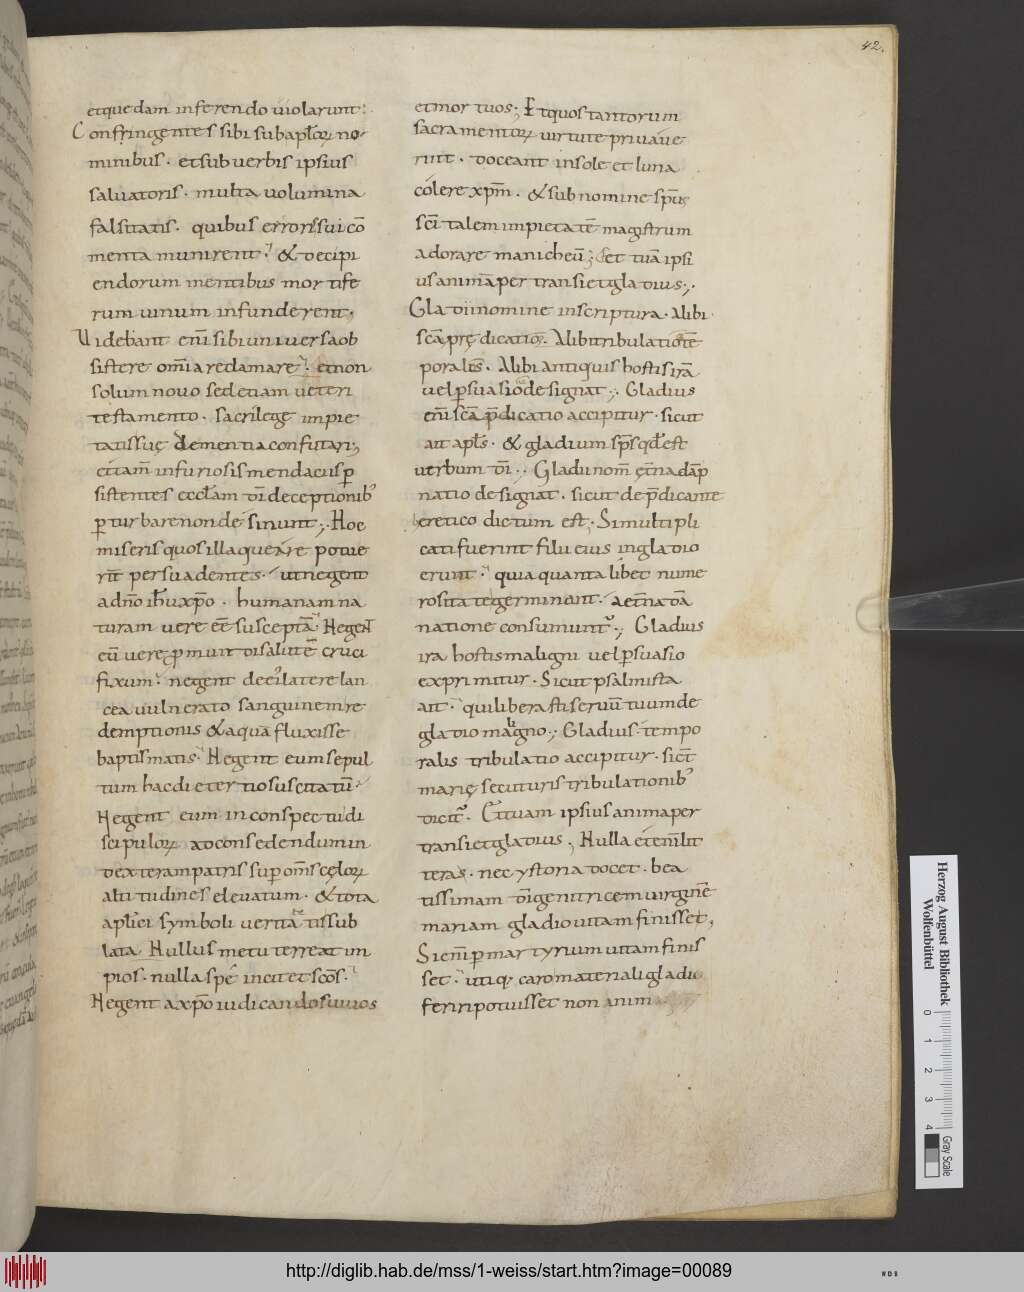 42.
etquedam inferendo uiolarunt:
Confringentes sibi sub apl̄oꝝ no
minibus. et sub uerbis ipsius
saluatoris. multa uolumina
falsitatis. quibus erroris sui cō
menta munirent. & decipi
endorum mentibus mortife
rum uinum infunderent.
Uidebant eni̅ sibi uniuersa ob
sistere om̄ia reclamare. et non
solum nouo sed etiam ueteri
testamento. sacrilege impie
tatis suę dementia confutari;
etiam̄ in furiosis mendaciis ꝑ
sistentes eccl̄am dī deceptionibꝰ
ꝑturbare non desinunt; Hoc
miseris quos illaqueare potue
rīt persuadentes. ut negent
a dn̄o ih̄u xp̄o. humanam na
turam uere eē susceptā. Negent
eū uere ꝓ mundi salute cruci
fixum. negent de ei' latere lan
cea uulnerato sanguinem re
demptionis & aquā fluxisse
baptismatis. Negent eum sepul
tum hac die tertio suscitatū.
Negent eum in conspectu di
scipuloꝝ ad consedendum in
dextera patris sup om̄s cęloꝝ
altitudines eleuatum. & tota
aplīci symboli ueritate sub
lata. Nullus metus terreat im
pios. nulla spe incitet sc̄os.
Negent a xp̄o iudicandos uiuos
et mortuos; Et quos tantorum
sacramentoꝝ uirtute priuaue
rint. doceant in sole et luna
colere xp̄m. & sub nomine sp̄us
sc̄i talem impietatē magistrum
adorare manicheū; et tuā ipsi
us animā pertransiet gladius;
Gladii nomine in scriptura. Alibi
sc̄a prędicatio. Alibi tribulatio tē
poralis. Alibi antiqui hostis ira
uel ꝑsuasio designat; Gladius
eni̅ sc̄a p̄dicatio accipitur. sicut
ait apl̄s. & gladium sp̄s qd̄ est
uerbum dī; Gladii nom̄ ęt̄na dāp
natio designat. sicut de p̄dicante
heretico dictum est; Si multipli
cati fuerint filii eius in gladio
erunt. quia quanta libet nume
rositate germinent. aet̄na dā
natione consumunt̄; Gladius
ira hostis maligni uel ꝑsuasio
exprimitur. Sicut psalmista
ait. qui liberasti seruū tuum de
gladio maligno; Gladius tempo
ralis tribulatio accipitur. sict̄
marię secuturis tribulationibꝰ
dicit̄. Et tuam ipsius anima per
transiet gladius; Nulla etenim̄ lit
teras. nec ystoria docet. bea
tissimam dī genitricem uirginē
mariam gladio uitam finisset,
Si eni̅ ꝑ martyrium uitam finis
set. utiq; caro materiali gladio
feriri potuisset non anim
Herzog August Bibliothek
Wolfenbüttel
0 1 2 3 4
Gray Scale
http://diglib.hab.de/mss/1-weiss/start.htm?image=00089